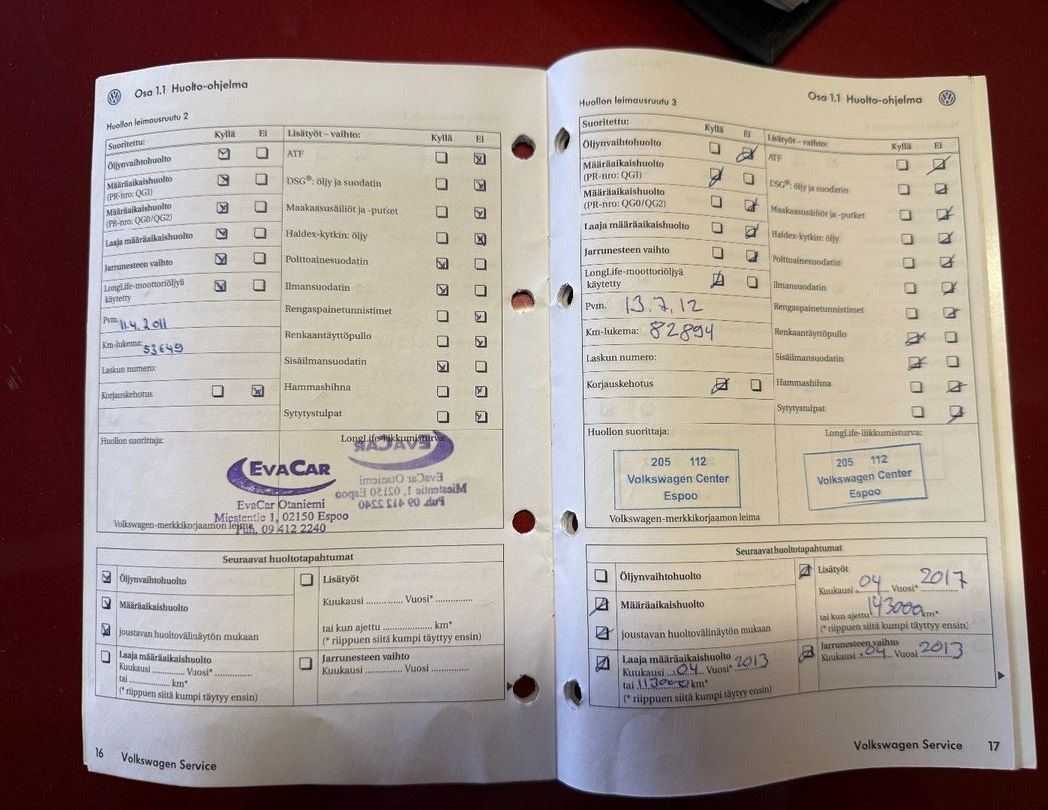 Osa 1.1 Huolto-ohjelma
Huollon leimausruutu 2
Suoritettu: Kyllä Ei
Öljynvaihtohuolto
Määräaikaishuolto
(PR-nro: QG1)
Määräaikaishuolto
(PR-nro: QG0/QG2)
Laaja määräaikaishuolto
Jarrunesteen vaihto
LongLife-moottoriöljyä
käytetty
Pvm. 11.4.2011
Km-lukema: 53649
Laskun numero:
Korjauskehotus
Lisätyöt – vaihto: Kyllä Ei
ATF
DSG®: öljy ja suodatin
Maakaasusäiliöt ja -putket
Haldex-kytkin: öljy
Polttoainesuodatin
Ilmansuodatin
Rengaspainetunnistimet
Renkaantäyttöpullo
Sisäilmansuodatin
Hammashihna
Sytytystulpat
Huollon suorittaja:
LongLife-liikkumisturva:
EVACAR
EvaCar Otaniemi
Miestentie 1, 02150 Espoo
Puh. 09 412 2240
EVACAR
EvaCar Otaniemi
Miestentie 1, 02150 Espoo
Puh. 09 412 2240
Volkswagen-merkkikorjaamon leima
Seuraavat huoltotapahtumat
Öljynvaihtohuolto
Määräaikaishuolto
joustavan huoltovälinäytön mukaan
Laaja määräaikaishuolto
Kuukausi ............ Vuosi* ............
tai ............ km*
(* riippuen siitä kumpi täytyy ensin)
Lisätyöt
Kuukausi ............ Vuosi* ............
tai kun ajettu ............ km*
(* riippuen siitä kumpi täyttyy ensin)
Jarrunesteen vaihto
Kuukausi ............ Vuosi ............
16 Volkswagen Service
Osa 1.1 Huolto-ohjelma
Huollon leimausruutu 3
Suoritettu: Kyllä Ei
Öljynvaihtohuolto
Määräaikaishuolto
(PR-nro: QG1)
Määräaikaishuolto
(PR-nro: QG0/QG2)
Laaja määräaikaishuolto
Jarrunesteen vaihto
LongLife-moottoriöljyä
käytetty
Pvm. 13.7.12
Km-lukema: 82894
Laskun numero:
Korjauskehotus
Lisätyöt – vaihto: Kyllä Ei
ATF
DSG®: öljy ja suodatin
Maakaasusäiliöt ja -putket
Haldex-kytkin: öljy
Polttoainesuodatin
Ilmansuodatin
Rengaspainetunnistimet
Renkaantäyttöpullo
Sisäilmansuodatin
Hammashihna
Sytytystulpat
Huollon suorittaja:
LongLife-liikkumisturva:
205 112
Volkswagen Center
Espoo
205 112
Volkswagen Center
Espoo
Volkswagen-merkkikorjaamon leima
Seuraavat huoltotapahtumat
Öljynvaihtohuolto
Määräaikaishuolto
joustavan huoltovälinäytön mukaan
Laaja määräaikaishuolto
Kuukausi ..04.. Vuosi* 2013
tai 113000 km*
(* riippuen siitä kumpi täytyy ensin)
Lisätyöt
Kuukausi 04 Vuosi* 2017
tai kun ajettu 143000 km*
(* riippuen siitä kumpi täyttyy ensin)
Jarrunesteen vaihto
Kuukausi 04 Vuosi 2013
Volkswagen Service 17